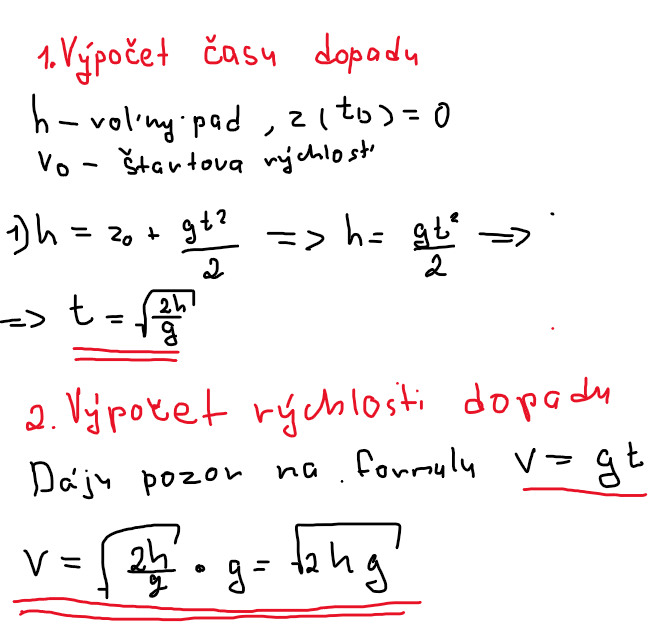 1. Výpočet času dopadu
h – voľny pad , z(t₀) = 0
v₀ – štartova rýchlosť
1) h = z₀ + gt²/2 => h = gt²/2 =>
=> t = √(2h/g)
2. Výpočet rýchlosti dopadu
Dáju pozor na formulu v = gt
v = √(2h/g) · g = √(2hg)